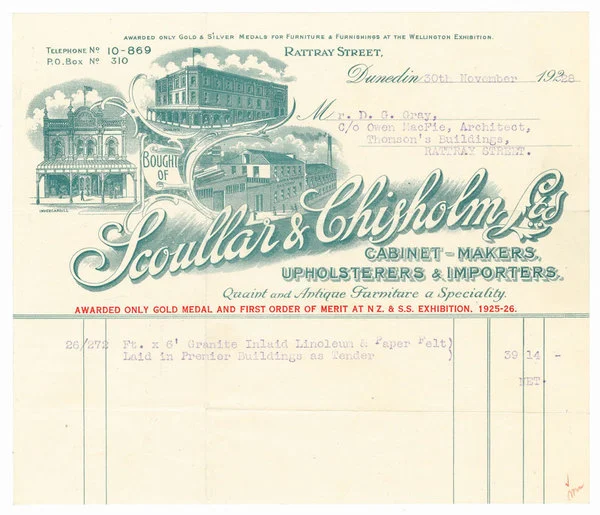 AWARDED ONLY GOLD & SILVER MEDALS FOR FURNITURE & FURNISHINGS AT THE WELLINGTON EXHIBITION.
TELEPHONE No 10-869
P.O. BOX No 310
RATTRAY STREET,
Dunedin 30th November 1928
Mr. D. G. Gray,
C/o Owen MacFie, Architect,
Thomson's Buildings,
RATTRAY STREET.
BOUGHT OF
INVERCARGILL
Scoullar & Chisholm Ltd
CABINET-MAKERS,
UPHOLSTERERS & IMPORTERS.
Quaint and Antique Furniture a Speciality.
AWARDED ONLY GOLD MEDAL AND FIRST ORDER OF MERIT AT N.Z. & S.S. EXHIBITION, 1925-26.
26/272 Ft. x 6' Granite Inlaid Linoleum & Paper Felt)
Laid in Premier Buildings as Tender ) 39 14 -
NET.